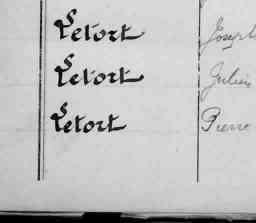 Letort Joseph
Letort Julien
Letort Pierre